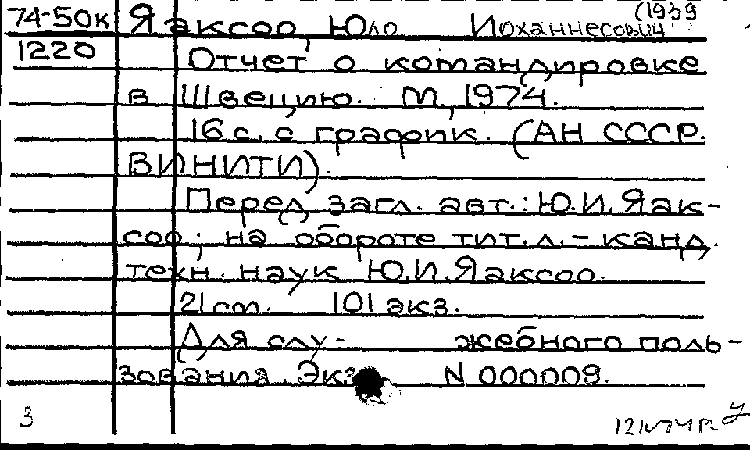 74-50к Яаксоо, Юло Йоханнесович (1939
1220 Отчет о командировке
в Швецию. М., 1974.
16 с. с график. (АН СССР.
ВИНИТИ).
Перед загл. авт.: Ю.И. Яак-
соо; на обороте тит. л. - канд.
техн. наук Ю.И. Яаксоо.
21 см. 101 экз.
Для слу- жебного поль-
зования. Экз. N 000009.
3